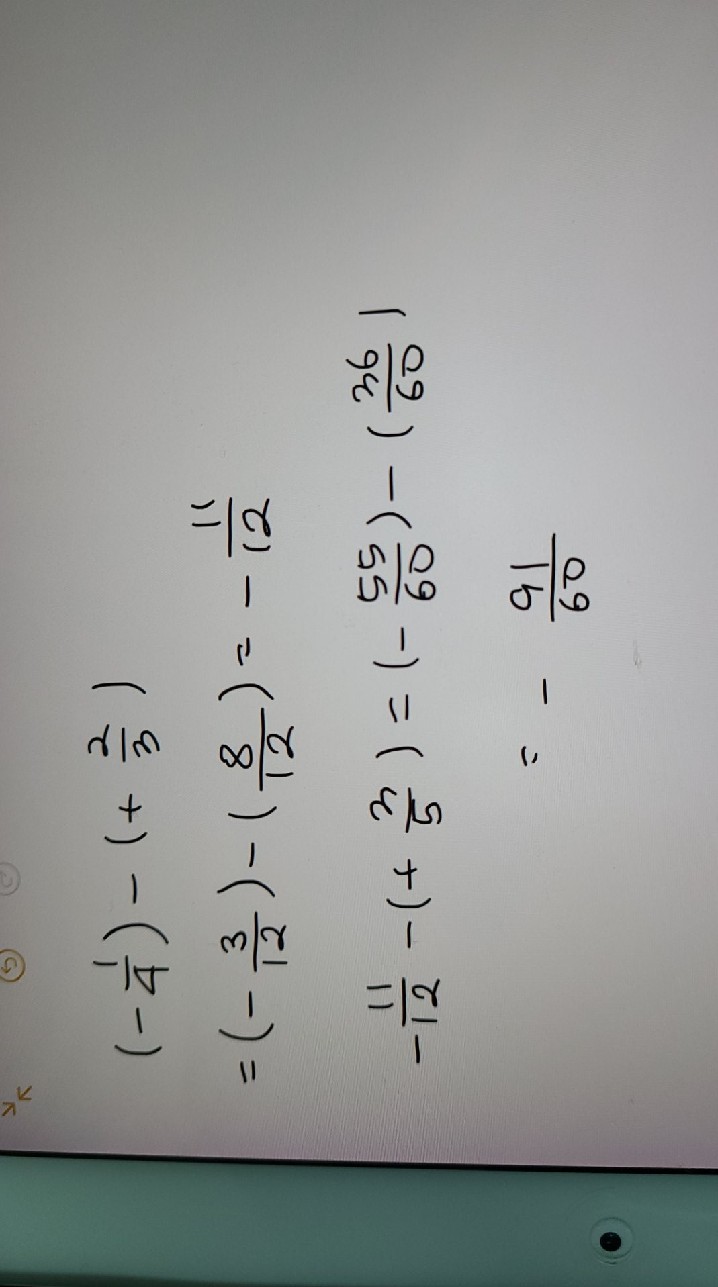 (-1/4) - (+ 2/3)
= (- 3/12) - (8/12) = - 11/12
- 11/12 - (+ 3/5) = (- 55/60) - (36/60)
= - 91/60